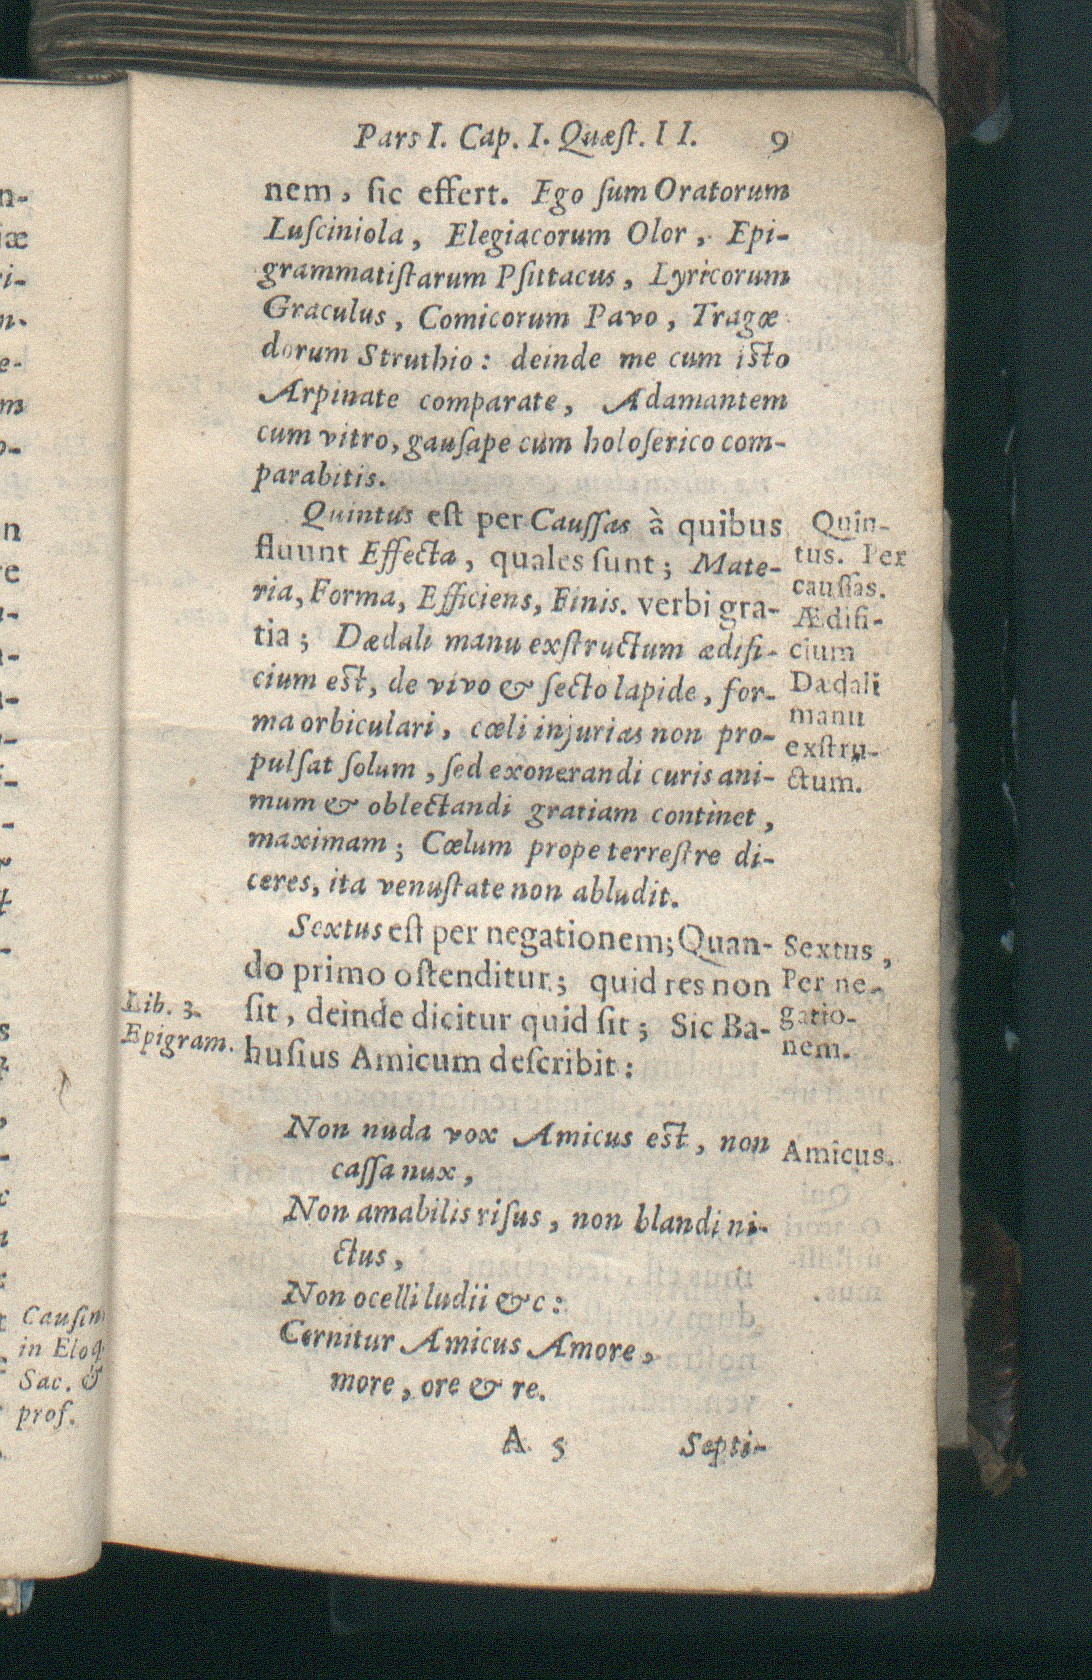 Pars I. Cap. I. Quæſt. I I. 9
nem, ſic effert. Ego ſum Oratorum
Luſciniola, Elegiacorum Olor, Epi-
grammatiſtarum Pſittacus, Lyricorum
Graculus, Comicorum Pavo, Tragœ
dorum Struthio: deinde me cum iſto
Arpinate comparate, Adamantem
cum vitro, gauſape cum holoſerico com-
parabitis.
Quintus eſt per Cauſſas à quibus
fluunt Effecta, quales ſunt; Mate-
ria, Forma, Efficiens, Finis. verbi gra-
tia; Dædali manu exſtructum ædifi-
cium eſt, de vivo & ſecto lapide, for-
ma orbiculari, cœli injurias non pro-
pulſat ſolum, ſed exonerandi curis ani-
mum & oblectandi gratiam continet,
maximam; Cœlum prope terreſtre di-
ceres, ita venuſtate non abludit.
Quin-
tus. Per
cauſſas.
Ædifi-
cium
Dædali
manu
exſtru-
ctum.
Sextus eſt per negationem; Quan-
do primo oſtenditur; quid res non
ſit, deinde dicitur quid ſit; Sic Ba-
huſius Amicum deſcribit:
Sextus,
Per ne-
gatio-
nem.
Lib. 3.
Epigram.
Non nuda vox Amicus eſt, non
caſſa nux,
Non amabilis riſus, non blandi ni-
ctus,
Non ocelli ludii &c:
Cernitur Amicus Amore,
more, ore & re.
Amicus.
A 5 Septi-
Cauſin
in Eloq
Sac. &
prof.